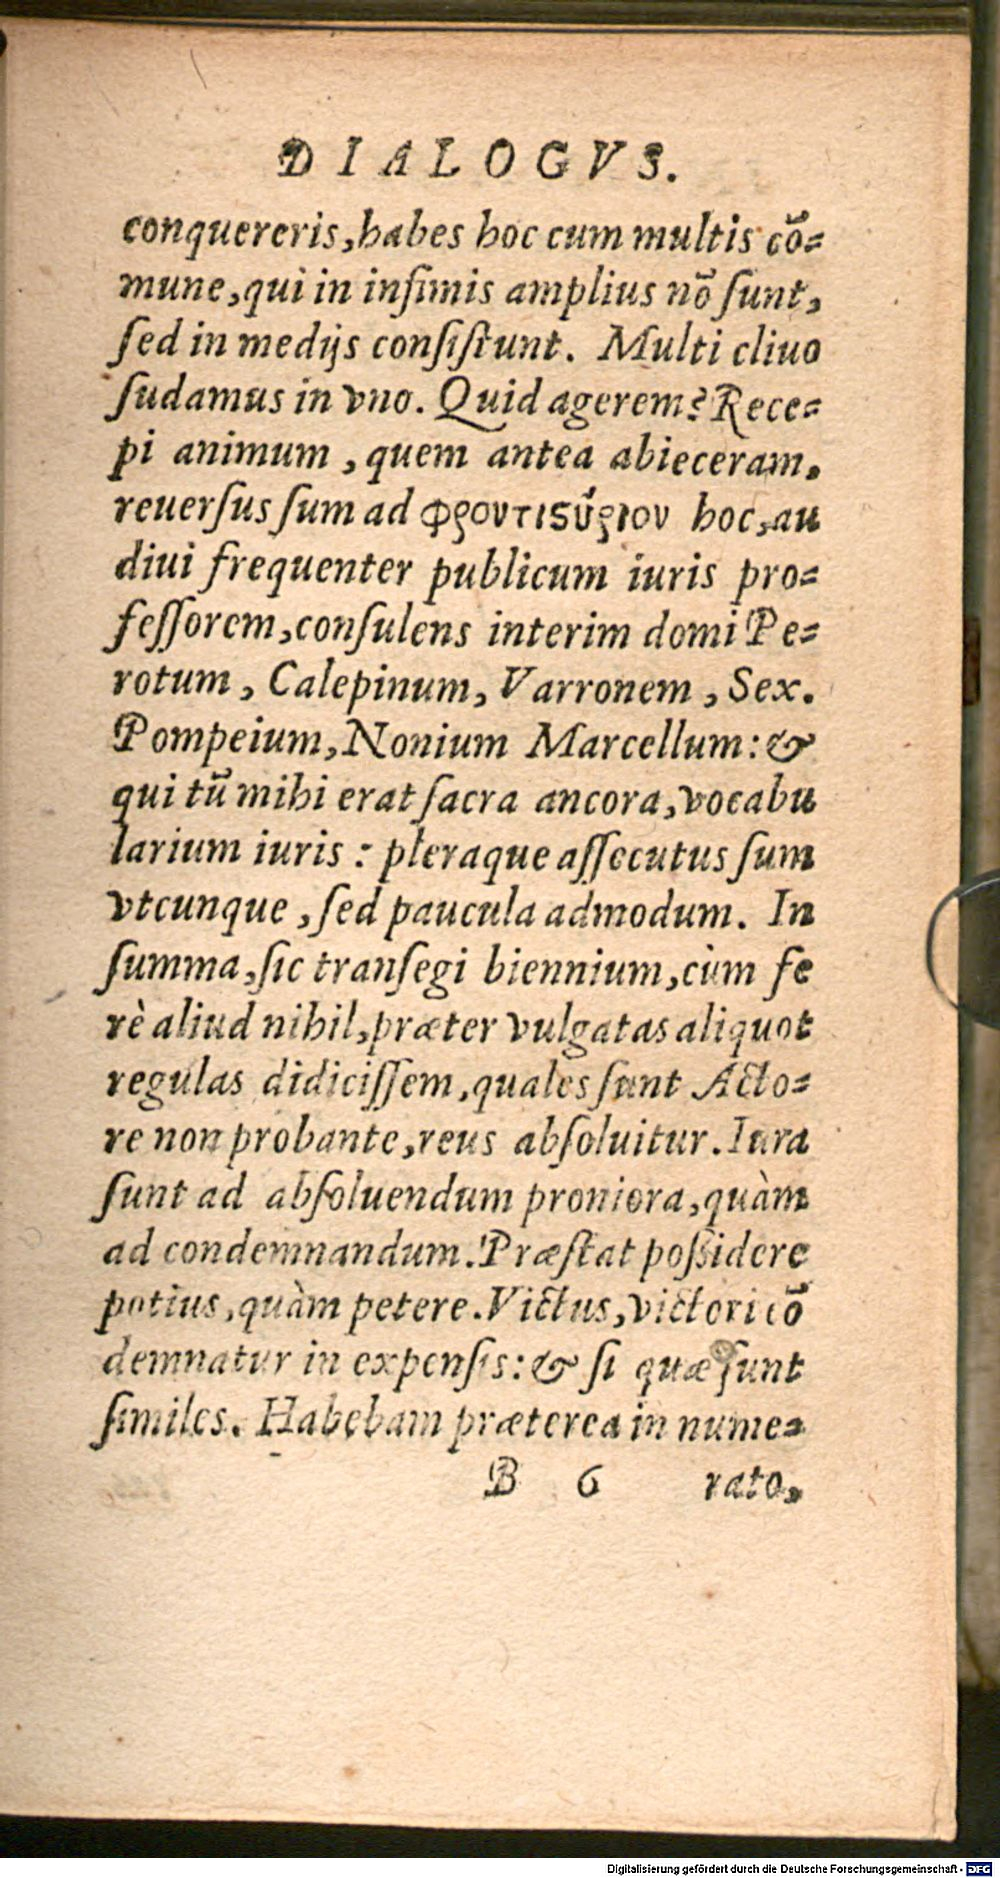 DIALOGVS.
conquereris, habes hoc cum multis cõ=
mune, qui in insimis amplius nõ sunt,
sed in medijs consistunt. Multi cliuo
sudamus in vno. Quid agerem? Rece=
pi animum, quem antea abieceram,
reuersus sum ad φροντιςύριον hoc, au
diui frequenter publicum iuris pro=
fessorem, consulens interim domi Pe=
rotum, Calepinum, Varronem, Sex.
Pompeium, Nonium Marcellum: &
qui tũ mihi erat sacra ancora, vocabu
larium iuris: pleraque assecutus sum
vtcunque, sed paucula admodum. In
summa, sic transegi biennium, cùm fe
rè aliud nihil, præter vulgatas aliquot
regulas didicissem, quales sunt Acto=
re non probante, reus absoluitur. Iura
sunt ad absoluendum proniora, quàm
ad condemnandum. Præstat possidere
potius, quàm petere. Victus, victori cõ
demnatur in expensis: & si quæ sunt
similes. Habebam præterea in nume=
B 6 rato,
Digitalisierung gefördert durch die Deutsche Forschungsgemeinschaft - DFG